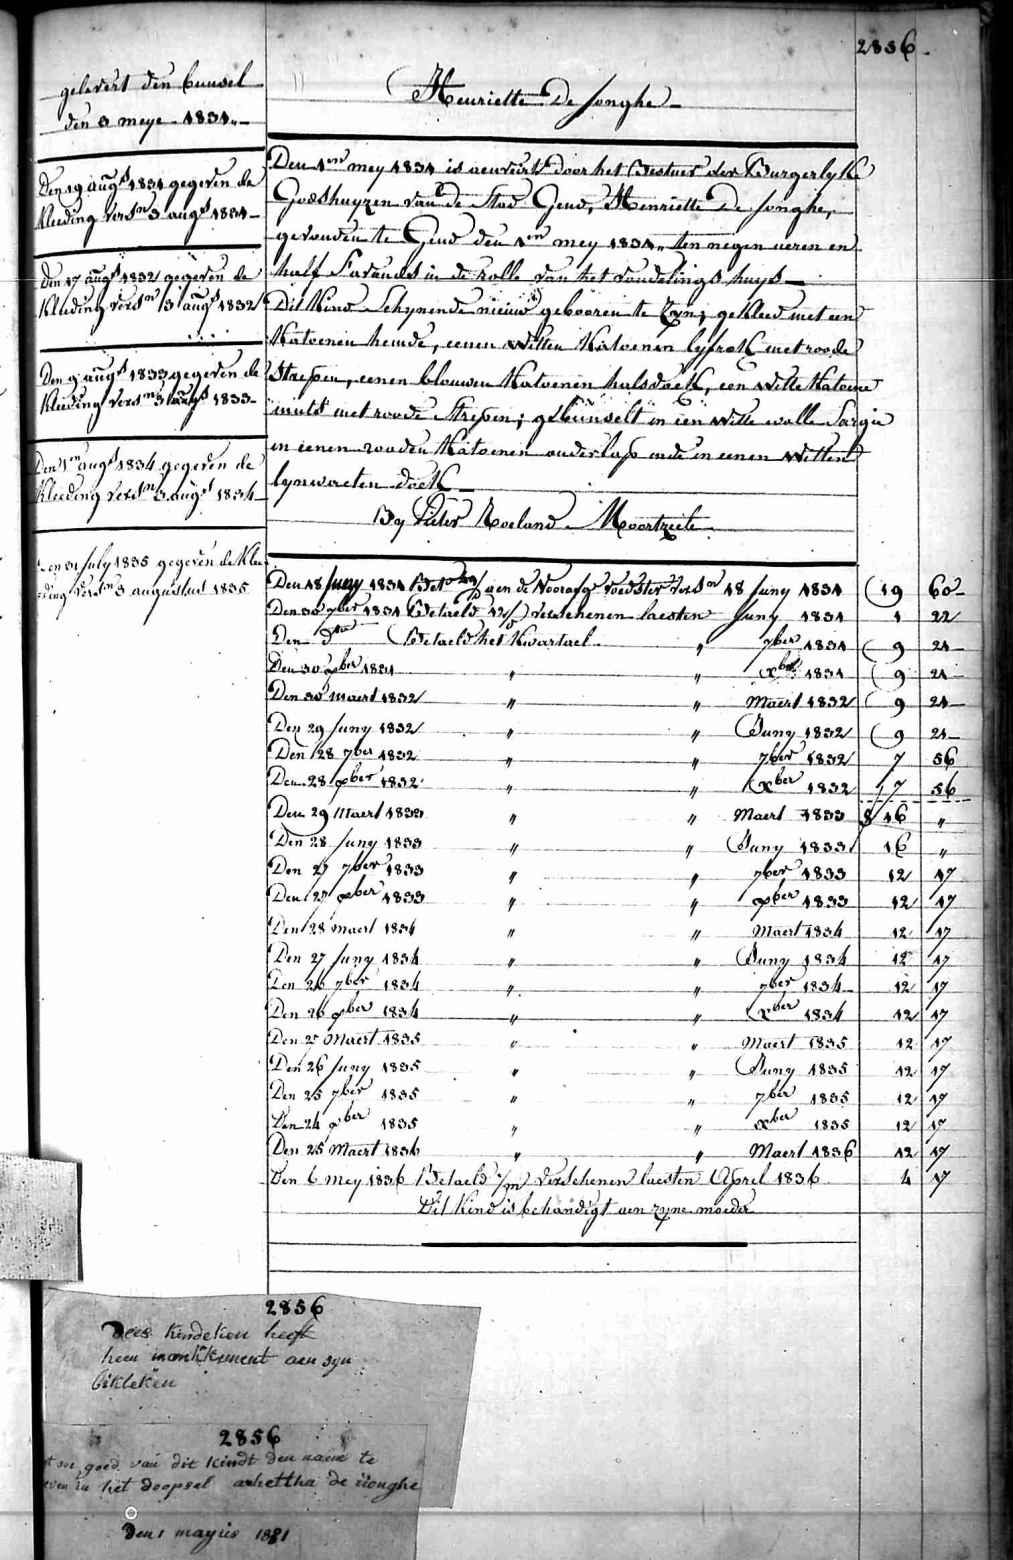 2856.
gelevert den bunsel
den 3 meye 1831.
Den 19 augt 1831 gegeven de
kleeding versn 3 augt 1831
Den 17 augt 1832 gegeven de
kleeding versn 3 augt 1832
Den 9 augt 1833 gegeven de
kleeding versn 3 augt 1833
Den 1en augt 1834 gegeven de
kleeding versn 3 augt 1834
Den 31 July 1835 gegeven de klee
ding versn 3 augustus 1835
Henriette De Jonghe
Den 1en mey 1831 is aenveirt door het Bestuer der Burgerlyke
Godshuyzen van de Stad Gend, Henriette De Jonghe,
gevonden te Gend den 1en mey 1831 ten negen ueren en
half s'avonds in de rolle van het vondelings huys
Dit Kind schynende nieuw gebooren te zyn; gekleed met een
Katoenen hemde, eenen witten Katoenen lyfrok met roode
Strepen, eenen blouwen Katoenen halsdoek, een witte Katoene
muts met roode Strepen; gebunselt in een witte wolle Sargie
in eenen rooden Katoenen ouderlap ende in eenen witten
lynwaeten doek
By Pieter Roeland Moortzeele
Den 18 Juny 1831 Bet aen de Voorafg voedster versn 18 Juny 1831 19 60
Den 30 7ber 1831 Betaeld 12/ verschenen laesten Juny 1831 1 22
Den dto Betaeld het Kwartael " 7ber 1831 9 24
Den 30 xber 1831 " " xber 1831 9 24
Den 30 maert 1832 " " Maert 1832 9 24
Den 29 Juny 1832 " " Juny 1832 9 24
Den 28 7ber 1832 " " 7ber 1832 7 56
Den 28 xber 1832 " " xber 1832 7 56
Den 29 Maert 1833 " " Maert 1833 16 "
Den 28 Juny 1833 " " Juny 1833 16 "
Den 27 7ber 1833 " " 7ber 1833 12 17
Den 27 xber 1833 " " xber 1833 12 17
Den 28 maert 1834 " " Maert 1834 12 17
Den 27 Juny 1834 " " Juny 1834 12 17
Den 26 7ber 1834 " " 7ber 1834 12 17
Den 26 xber 1834 " " xber 1834 12 17
Den 27 Maert 1835 " " Maert 1835 12 17
Den 26 Juny 1835 " " Juny 1835 12 17
Den 25 7ber 1835 " " 7ber 1835 12 17
Den 24 xber 1835 " " xber 1835 12 17
Den 25 Maert 1836 " " Maert 1836 12 17
Den 6 mey 1836 Betaeld 1/m verschenen laesten April 1836 4 7
Dit Kind is behandigt aen zyne moeder
2856
Dees kindeken heeft
heen mankkement aen syn
bikleken
2856
goed van dit kindt den naem te
even in het doopsel arhettha de iionghe
den 1 mayus 1831